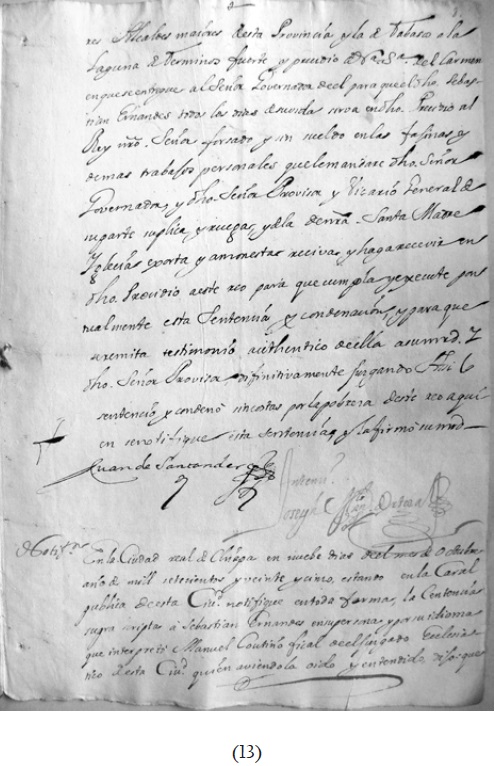 res Alcaldes maiores desta Provincia y la de Tabasco a la
Laguna de Terminos fuerte y presidio de Nra. Sa. del Carmen
en que se entregue al Señor Governador del para que el dho. Sebas-
tian Ernandes todos los dias de su vida sirva en dho. Presidio al
Rey nro. Señor forsado y sin sueldo en las fajinas y
demas trabajos personales que le mandare dho. Señor
Governador, y dho. Señor Provisor y Vicario General de
su parte suplica y ruega, y de la de nra. Santa Madre
Yglecia exorta y amonesta reciva y haga recevir en
dho. Precidio a este reo para que cumpla y execute pun
tualmente esta Sentencia y condenación, y para que
se remita testimonio authentico de ella a su mrd. Y
dho. Señor Provisor difinitivamente juzgando Assi lo
sentenció y condenó sin costas por la pobresa deste reo a qui
en se notifique esta sentencia, y la firmó su mrd
Juan de Santander
Ante mi
Joseph de Ortega
Notifon.
En la Ciudad real de Chiapa en nuebe dias del mes de Octubre
año de mill setecientos y veinte y cinco, estando en la Carsel
publica de esta Ciud. notifique en toda forma, la Centencia
supra scripta á Sebastian Ernandes en su persona y por su idioma
que interpretó Manuel Coutiño fiscal de el jusgado Eclecias-
tico de esta Ciud. quien aviendola oido y entendido, dijo: que
(13)